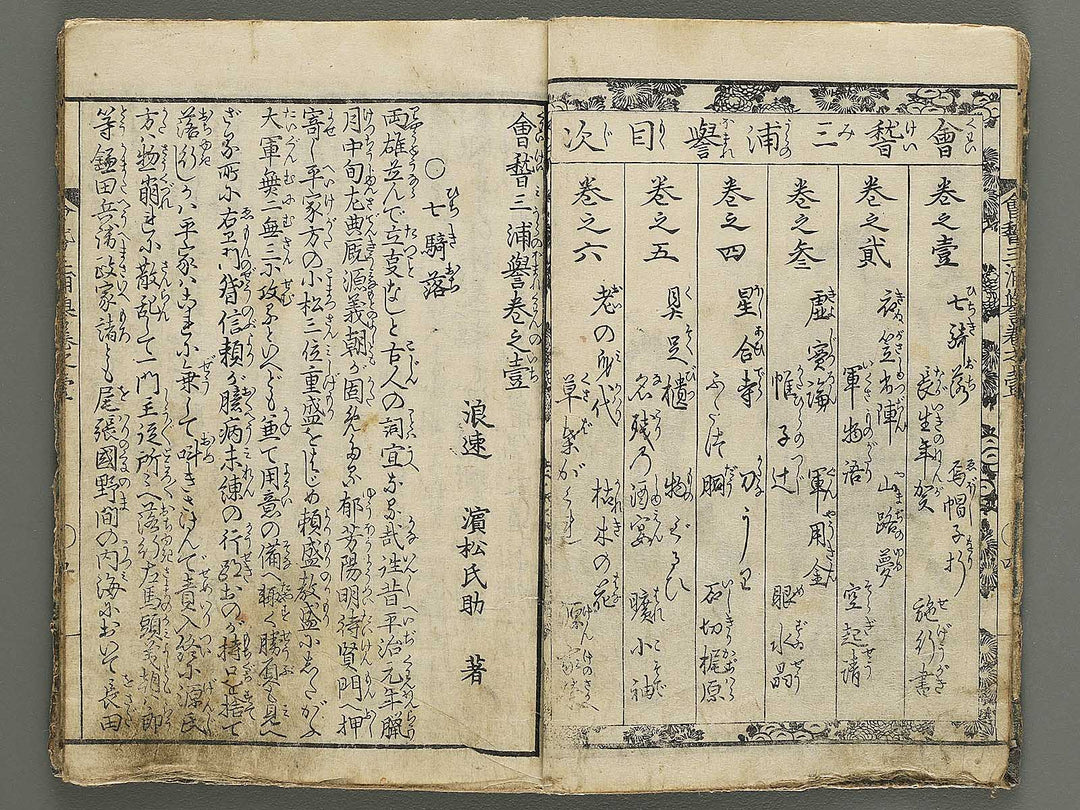 會稽三浦譽目次
巻之壹
七騎落 烏帽子折
長生年賀 施行書
巻之貳
衣笠出陣 山路夢
軍物語 空起請
巻之叄
虚實海 軍用金
帷子辻 眼水晶
巻之四
星合寺 刀うり
ふたつ胴 石切梶原
巻之五
具足櫃 物ぐるひ
名残乃酒宴 曠小袖
巻之六
老の身代 枯木の花
草葉がくれ 源家
會稽三浦譽巻之壹
浪速 濱松氏助 著
○七騎落
両雄並んで立事なしと古人の詞宜なる哉往昔平治元年臘
月中旬左典厩源義朝が固めたる郁芳陽明待賢門へ押
寄し平家方の小松三位重盛をはじめ頼盛教盛にしたがふ
大軍無二無三に攻るといへども兼て用意の備へ輙く勝負も見へ
ざる所に右衛門督信頼が臆病未練の行跡おのが持口を捨て
落行ば平家はこれに乗して叫きさけんで責入給に源氏
方物崩れに散乱して一門主従所々へ落行左馬頭義朝郎
等鎌田兵衛政家諸とも尾張國野間の内海において長田